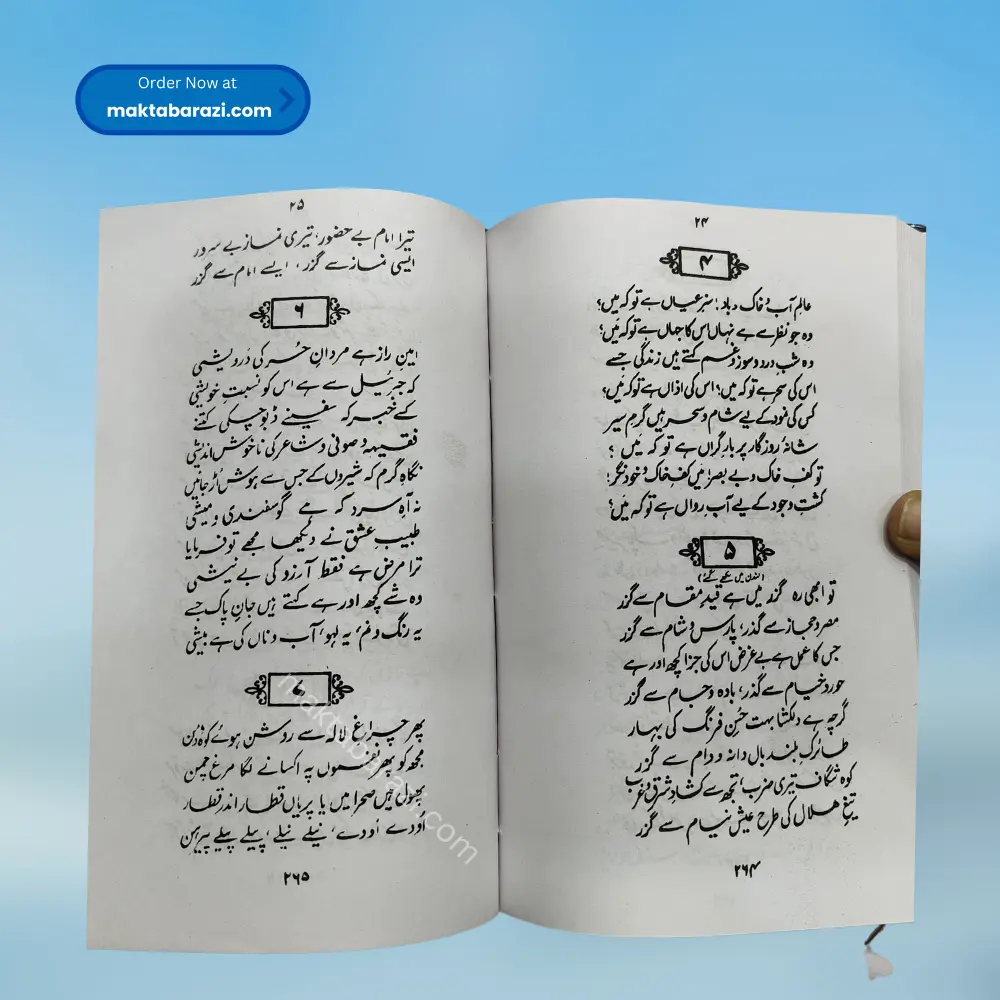 Order Now at
maktabarazi.com
۲۴
۴
عالمِ آب و خاک و باد! سرِّ عیاں ہے تو کہ مَیں؟
وہ جو نظر سے ہے نہاں اس کا جہاں ہے تو کہ مَیں؟
وہ شبِ درد و سوز و غم کہتے ہیں زندگی جسے
اس کی سحر ہے تو کہ میں؟ اس کی اذاں ہے تو کہ مَیں؟
کس کی نمود کے لیے شام و سحر ہیں گرمِ سیر
شانۂ روزگار پر بارِ گراں ہے تو کہ مَیں ؟
تو کفِ خاک و بے بصر! مَیں کفِ خاک و خود نگر!
کشتِ وجود کے لیے آبِ رواں ہے تو کہ مَیں؟
۵
(لندن میں لکھے گئے)
تو ابھی رہ گذر میں ہے قیدِ مقام سے گزر
مصر و حجاز سے گذر، پارس و شام سے گزر
جس کا عمل ہے بے غرض اس کی جزا کچھ اور ہے
حور و خیام سے گذر، بادہ و جام سے گزر
گرچہ ہے دلکشا بہت حُسنِ فرنگ کی بہار
طائرکِ بلند بال دانہ و دام سے گزر
کوہ شگاف تیری ضرب، تجھ سے کشادِ شرق و غرب
تیغِ ھلال کی طرح عیشِ نیام سے گزر
۲۶۴
۲۵
تیرا امام بے حضور، تیری نماز بے سرور
ایسی نماز سے گزر ، ایسے امام سے گزر
۶
امینِ راز ہے مردانِ حُر کی درویشی
کہ جبرئیل سے ہے اس کو نسبتِ خویشی
کسے خبر کہ سفینے ڈبو چکی کتنے
فقیہہ و صوفی و شاعر کی نا خوش اندیشی
نگاہِ گرم کہ شیروں کے جس سے ہوش اُڑ جائیں
نہ آہِ سرد کہ ہے گوسفندی و میشی
طبیبِ عشق نے دیکھا مجھے تو فرمایا
ترا مرض ہے فقط آرزو کی بے نیشی
وہ شے کچھ اور ہے کہتے ہیں جانِ پاک جسے
یہ رنگ و نم، یہ لہو، آب و ناں کی ہے بیشی
۷
پھر چراغِ لالہ سے روشن ہوئے کوہ و دمن
مجھ کو پھر نغموں پہ اکسانے لگا مرغِ چمن
پھول ہیں صحرا میں یا پریاں قطار اندر قطار
اُودے اُودے، نیلے نیلے، پیلے پیلے پیرہن
۲۶۵
maktabarazi.com